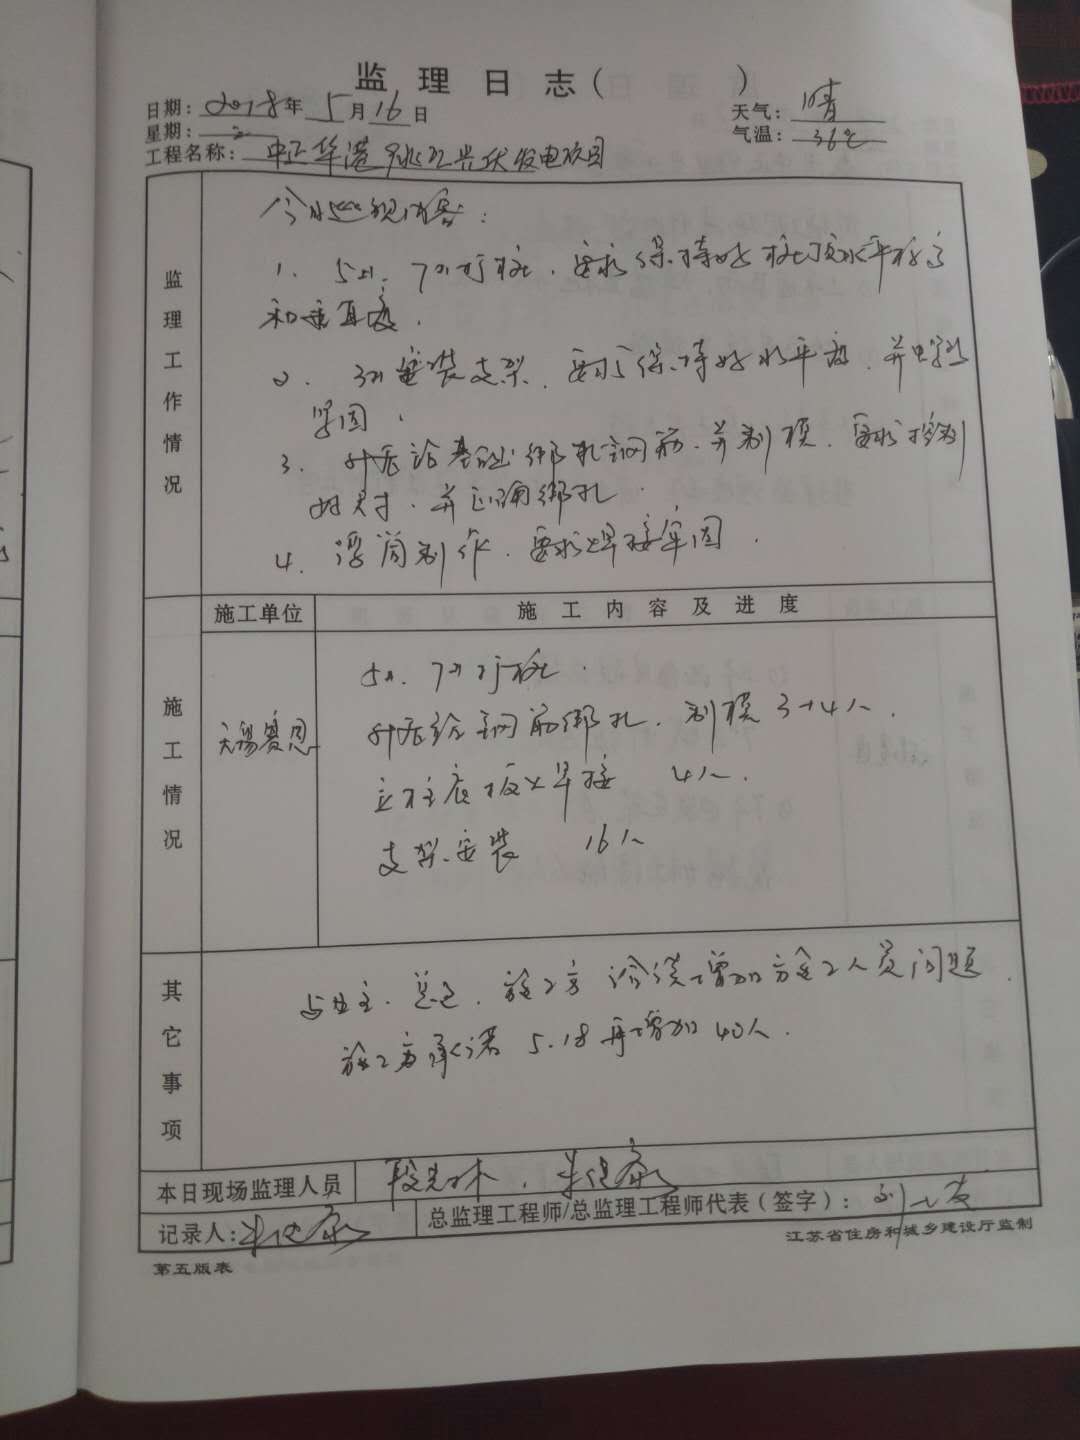 监 理 日 志 ( )
日期: 2018年 5月16日
天气: 晴
星期: 2
气温: 36℃
工程名称: 中正华港 发电项目
监理工作情况
今日巡视内容:
1. 5#. 7#打桩. 要求保持好桩顶水平标高
和垂直度.
2. 3#安装支架. 要求保持好水平度, 并
紧固.
3. 基础绑扎钢筋. 并制模. 要求控制
好尺寸. 并正确绑扎.
4. 浮筒制作. 要求焊接牢固.
施工情况
施工单位
施 工 内 容 及 进 度
无锡赛恩
5#. 7#打桩.
钢筋绑扎. 制模 34人.
立柱底板焊接 4人.
支架安装 16人
其它事项
与业主. 总包. 施工方 洽谈增加施工人员问题.
施工方承诺 5.18再增加40人.
本日现场监理人员
朱健康
记录人: 朱健康
总监理工程师/总监理工程师代表（签字）: 刘
江苏省住房和城乡建设厅监制
第五版表